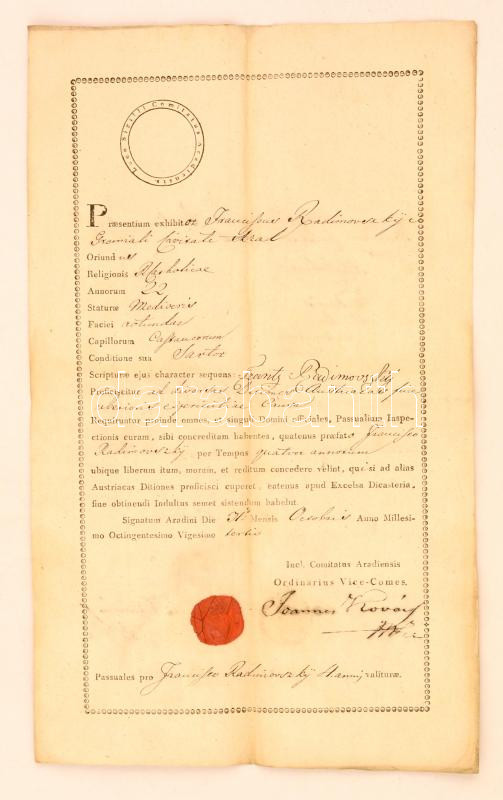 Loco Sigilli Comitatus Aradiensis
Præsentium exhibitor Franciscus Radimovszkÿ e
Gremiali Civitate Arad
Oriundus
Religionis Rcatholicae
Annorum 22
Staturæ Mediocris
Faciei rotundae
Capillorum Castaneorum
Conditione sua Sartor
Scripturæ ejus character sequens: Frantz Radimovszkÿ
Proficiscitur ad diversas Ditiones Austriacas fine
ulterioris experientiae
Requiruntur proinde omnes, et singuli Domini officiales, Passualium Inspe-
ctionis curam, sibi concreditam habentes, quatenus præfato Francisco
Radimovszkÿ per Tempus quatuor annorum
ubique liberum itum, moram, et reditum concedere velint, qui si ad alias
Austriacas Ditiones proficisci cuperet, eatenus apud Excelsa Dicasteria,
fine obtinendi Indultus semet sistendum habebit.
Signatum Aradini Die Mensis Octobris Anno Millesi-
mo Octingentesimo Vigesimo tertio
Incl. Comitatus Aradiensis
Ordinarius Vice-Comes.
Joannes Kováts
Passuales pro Francisco Radimovszkÿ 4 annis valituræ.
darabanth